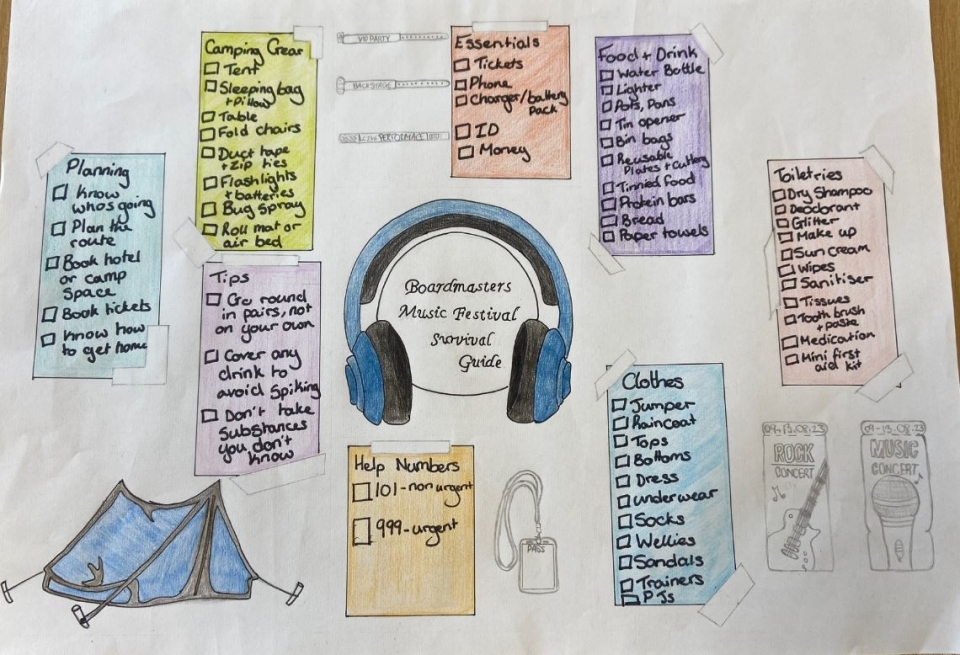 Planning
Know
who's going
Plan the
route
Book hotel
or camp
space
Book tickets
Know how
to get home
Camping Gear
Tent
Sleeping bag
+ Pillow
Table
Fold chairs
Duct tape
+ zip ties
Flashlights
+ batteries
Bug spray
Roll mat or
air bed
Tips
Go round
in pairs, not
on your own
Cover any
drink to
avoid spiking
Don't take
substances
you don't
know
VIP PARTY
BACKSTAGE
PERFORMANCE
Essentials
Tickets
Phone
Charger/battery
pack
ID
Money
Boardmasters
Music Festival
Survival
Guide
Help Numbers
101-non urgent
999-urgent
PASS
Food + Drink
Water Bottle
Lighter
Pots, Pans
Tin opener
Bin bags
Reusable
Plates + Cutlery
Tinnied food
Protein bars
Bread
Paper towels
Clothes
Jumper
Raincoat
Tops
Bottoms
Dress
underwear
Socks
Wellies
Sandals
Trainers
PJs
Toiletries
Dry Shampoo
Deodorant
Glitter
Make up
Sun cream
Wipes
Sanitiser
Tissues
Tooth brush
+ paste
Medication
Mini first
aid kit
09-13.08.23
ROCK
CONCERT
09-13.08.23
MUSIC
CONCERT